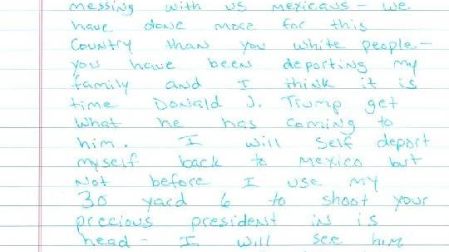 messing with us mexicans - we
have done more for this
country than you white people -
you have been deporting my
family and I think it is
time Donald J. Trump get
what he has coming to
him. I will self deport
myself back to mexico but
not before I use my
30 yard 6 to shoot your
precious president in is
head - I will see him